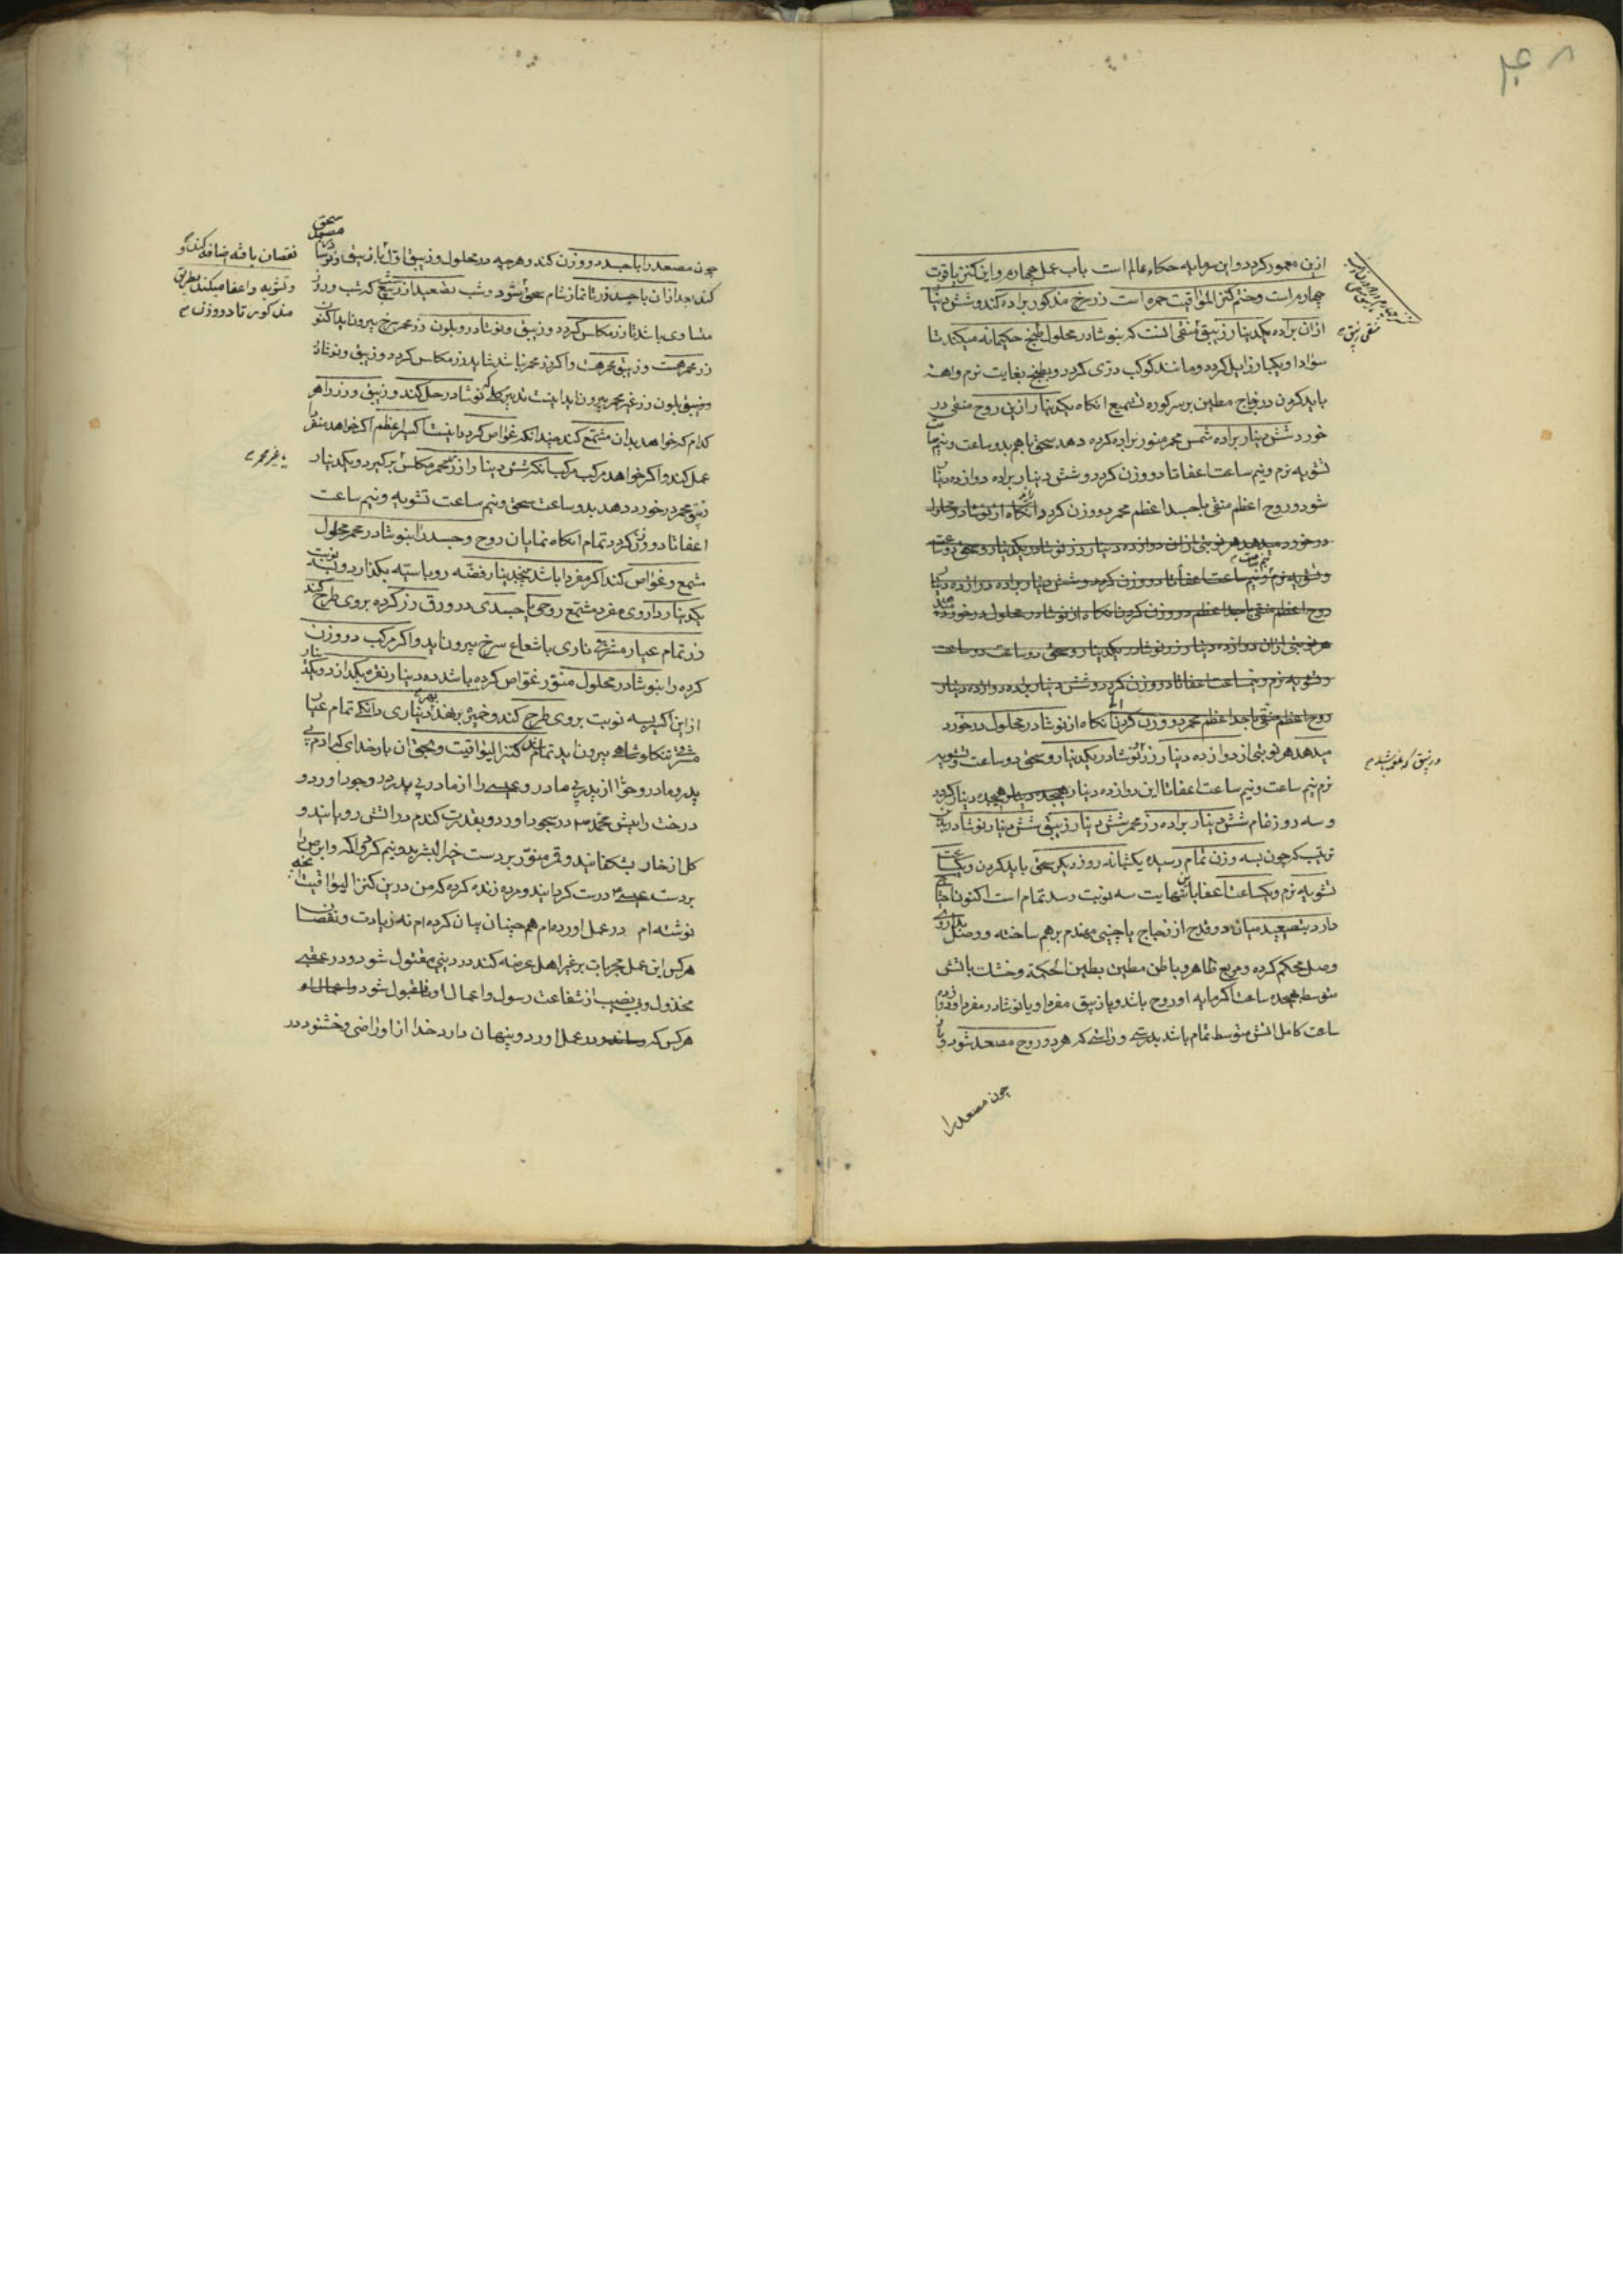 ازین معمور کردد و این سرمایه حکماء عالم است باب عمل چهارم و این کنز یاقوت
چهارم است و ختم کنز الیواقیت حمره است زر سرخ مذکور براده کند و شش دینار
ازان براده یکدینار زیبق منقی انست که بنوشادر محلول طبخ حکیمانه میکند تا
سواد او یکبار زایل کردد و مانند کوکب دری کردد و بطبخ بغایت نرم واهسته
باید کردن در زجاج مطین بر سر کوره تشمیع انکاه یکدینار ازین روح منقی در
خورد شش دینار براده شمس محمر منور براده کرده دهد سحق باهم بدو ساعت و نیم ساعت
تشویه نرم و نیم ساعت اعفا تا دو وزن کردد و شش دینار براده دوازده دینار
شود و روح اعظم منقی با جسد اعظم محمر دو وزن کردد انکاه از نوشادر محلول
در خورد میدهد هر نوبتی ازان دوازده دینار زر نوشادر یکدینار و سحق دو ساعت
و تشویه نرم و نیم ساعت اعفا تا دو وزن کردد و شش دینار براده دوازده دینار
روح اعظم منقی با جسد اعظم دو وزن کردن انکاه از نوشادر محلول در خورد میدهد
هر نوبتی ازان دوازده دینار زر نوشادر یکدینار و سحق دو ساعت دو ساعت
و تشویه نرم و نیم ساعت اعفا تا دو وزن کردد و شش دینار براده دوازده دینار
روح اعظم منقی با جسد اعظم محمر دو وزن کردن انکاه از نوشادر محلول در خورد
میدهد هر نوبتی از دوازده دینار زر نوشادر یکدینار و سحق دو ساعت و تشویه
نرم نیم ساعت و نیم ساعت اعفا تا این دوازده دینار هیجده دینار هیجده دینار کردد
و سه روز تمام شش دینار براده زر محمر شش دینار زیبق شش دینار نوشادر بدین
ترتیب که چون بسه وزن تمام رسیده یکشبانه روز دیکر سحق باید کردن و یکساعت
تشویه نرم و یکساعت اعفا تا بنهایت سه نوبت رسد تمام است اکنون احتیاج
دارد بتصعید میان دو قدح از زجاج یا چینی مهندم برهم ساخته و وصل بداروی
وصل محکم کرده و مربع ظاهر و باطن مطین بطین الحکمة و خشک باتش
متوسط هیجده ساعت اکر مایه او روح باشد و یا زیبق مفرد او یا نوشادر مفرد او دوازده
ساعت کامل اتش متوسط تمام باشد بدرستی و راستی که هر دو روح مصعد شود و
چون مصعد را
چون مصعد را با جسد دو وزن کند و هرچه در محلول و زیبق اول
کند بعد ازان با جسد زر تا نماز شام سحق شود و شب تصعید از زیبق که شب و روز
متساوی باشد تا زر مکاس کردد و زیبق و نوشادر و بلون زر محمر سرخ بیرون اید اکنون
زر محمر هست و زیبق محمر هست و اکر زر محمر نباشد شاید زر مکاس کردد و زیبق و نوشادر
و زیبق بلون زر غیر محمر بیرون اید اینست تدبیر کلی نوشادر حل کند و زیبق و زر را هر
کدام که خواهد بدان مشمع کند چندانکه غواص کردد اینست اکسیر اعظم اکر خواهد مفرد
عمل کند و اکر خواهد مرکب مرکب انکه شش دینار از زر محمر مکاس برکیرد و یکدینار
زیبق محمر در خورد دهد بدو ساعت سحق و نیم ساعت تشویه و نیم ساعت
اعفا تا دو وزن کردد تمام انکاه نمایان روح و جسد را بنوشادر محمر محلول
مشمع و غواص کند اکر مفرد باشد پنجدینار فضه روباسیه بکذارد و نوبت
یکدینار داروی مفرد مشمع روحی یا جسدی در ورق زر کرده بروی طرح کند
زر تمام عیار مشرقی ناری با شعاع سرخ بیرون اید و اکر مرکب دو وزن
کرده را بنوشادر محلول منور غواص کرده باشد ده دینار نقره بکدازد و یکدینار
ازاین اکسیر بسه نوبت بروی طرح کند و خمیر
مشرقی بیرون اید تمام شد کنز الیواقیت و بحق ان بار خدای که ادم بی
پدر و مادر و حوا از پدر بی مادر و عیسی را از مادر بی پدر در وجود اورد و
درخت را پیش محمد در سجود اورد و بقدرت کندم در اتش رویانید و
کل از خار بشکفانید و قمر منور بر دست خیر البشر بدو نیم کرد و اکمه و ابرص را
بر دست عیسی درست کردانید و مرده زنده کرد که من درین کنز الیواقیت انچه
نوشته ام در عمل اورده ام هم چنان بیان کرده ام نه زیادت و نقصان
هر کس این عمل مجربات بر غیر اهل عرضه کند در دنیی مقتول شود و در عقبی
مخذول و بی نصیب از شفاعت رسول و اعمال او نامقبول شود
هر کس که در عمل اورد و پنهان دارد خدا از او راضی و خشنود در
نقصان یافته اضافه کند
و تشویه و اعفا میکند بطریق
مذکور تا دو وزن
غیر محمر